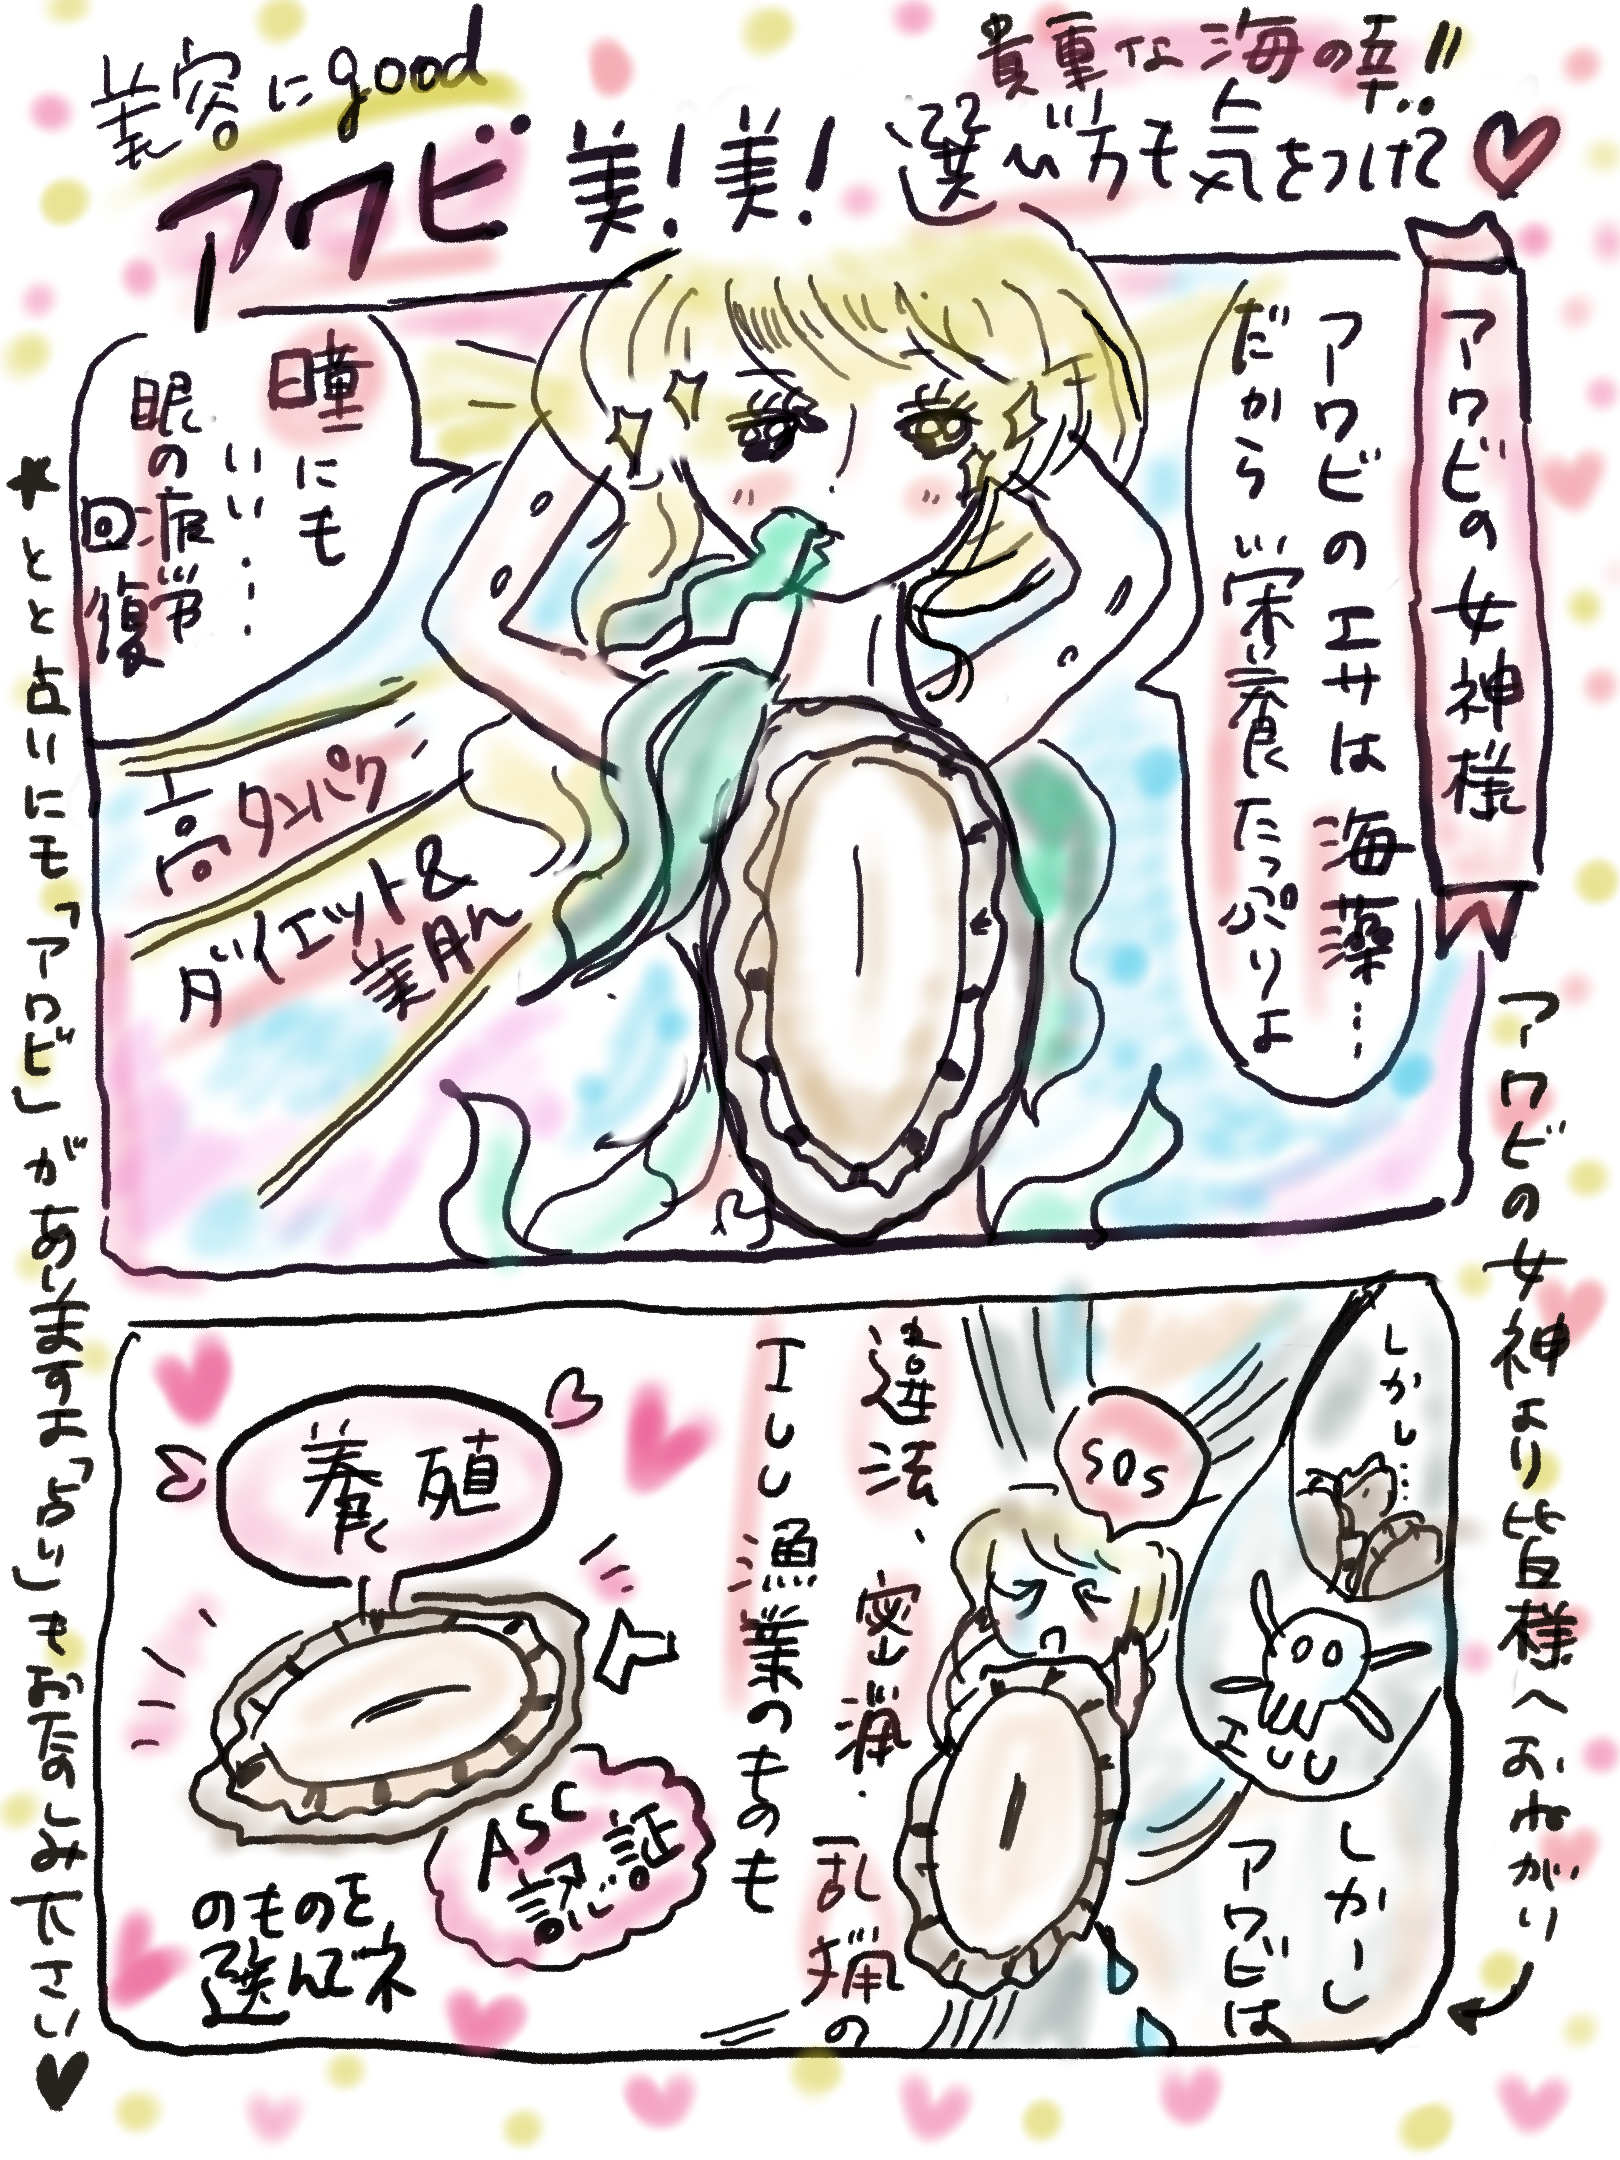 美容にgood
アワビ 美!美!
貴重な海の幸!!
選い方も気をつけて
アワビの女神様
アワビのエサは海藻…
だから栄養たっぷりよ
瞳にも
いい…
眼の疲労
回復
高タンパク
ダイエット&
美肌
アワビの女神より皆様へおねがい
しかし…
エリリ
しかーし
アワビは
SOS
違法、密漁・乱獲の
エしし漁業のものも
養殖
ASC
認証
のものを
選んでネ
*とと占いにモ「アワビ」がありますよ「占い」もおたのしみ下さい